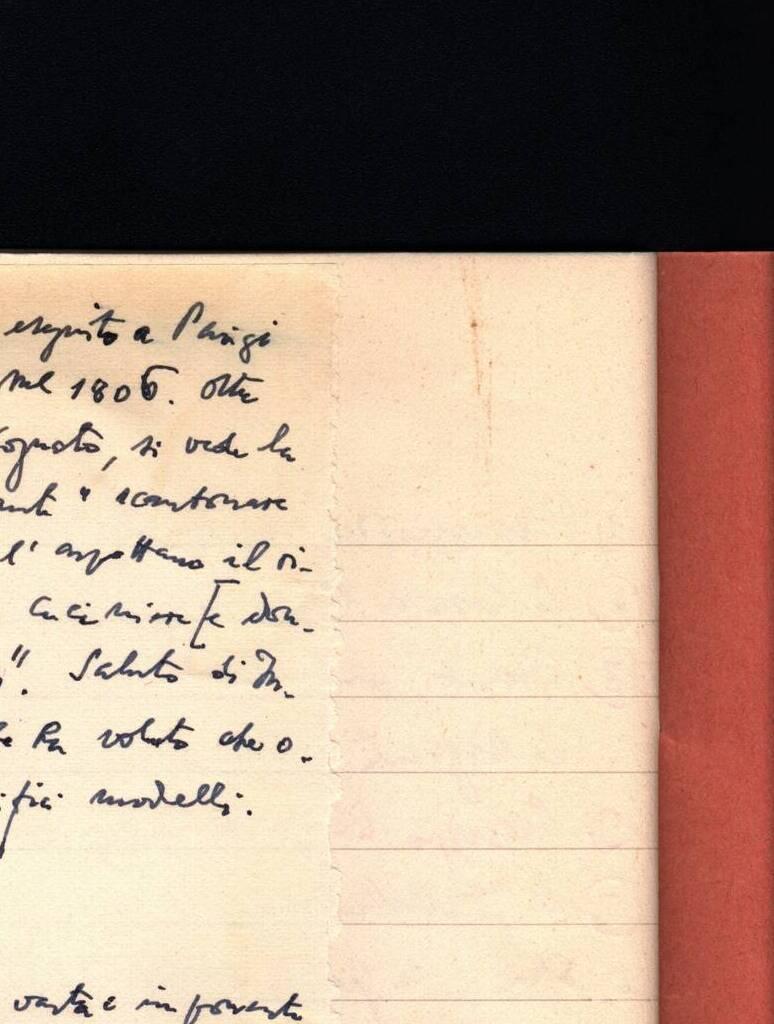 eseguito a Parigi
nel 1806. Oltre
cognato, si vede la
" scantonare
l'aspettano il ri-
don-
". Saluto di In-
ha voluto che o-
modelli.
vasta e imponente